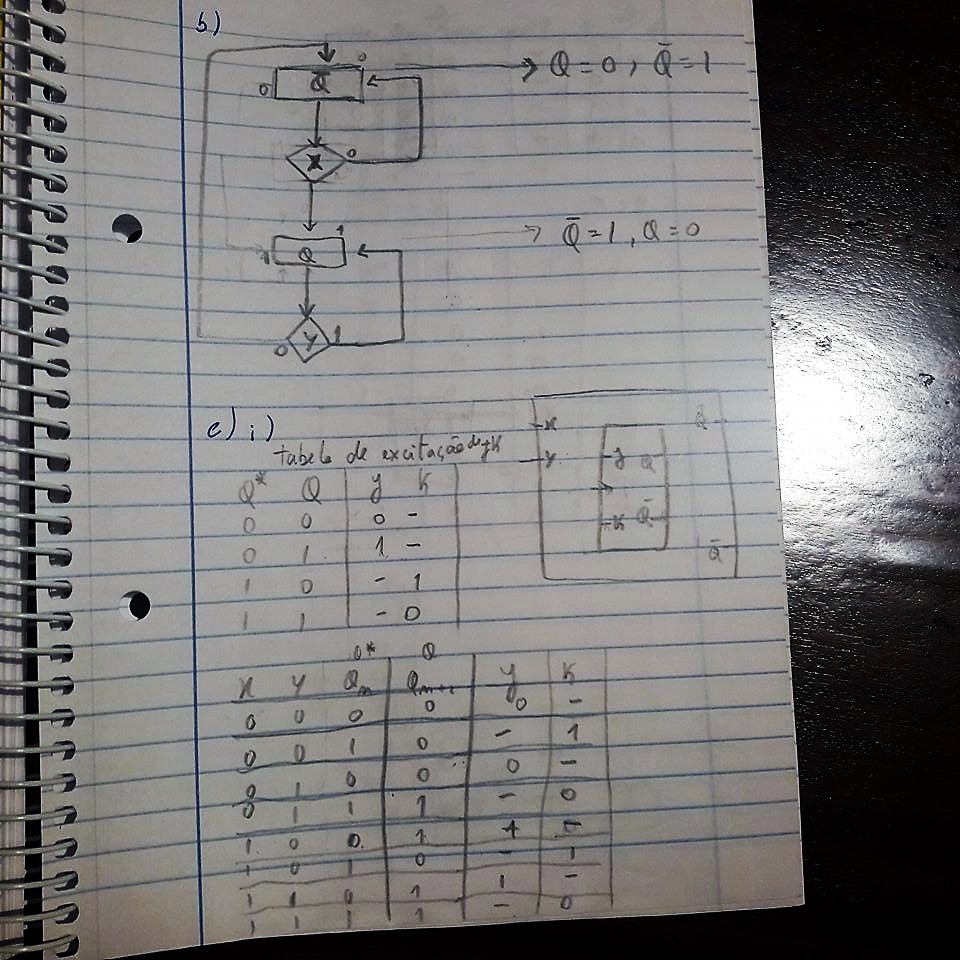 b)
0
0 Q̄ → Q = 0, Q̄ = 1
X 0
1
Q → Q̄ = 1, Q = 0
0 Y 1
c) i)
tabela de excitação de JK
Q* Q J K
0 0 0 -
0 1 1 -
1 0 - 1
1 1 - 0
x Q
y J Q
K Q̄
Q̄
Q* Q
X Y Qn Qn+1 J K
0 0 0 0 0 -
0 0 1 0 - 1
0 1 0 0 0 -
0 1 1 1 - 0
1 0 0 1 1 -
1 0 1 0 - 1
1 1 0 1 1 -
1 1 1 1 - 0